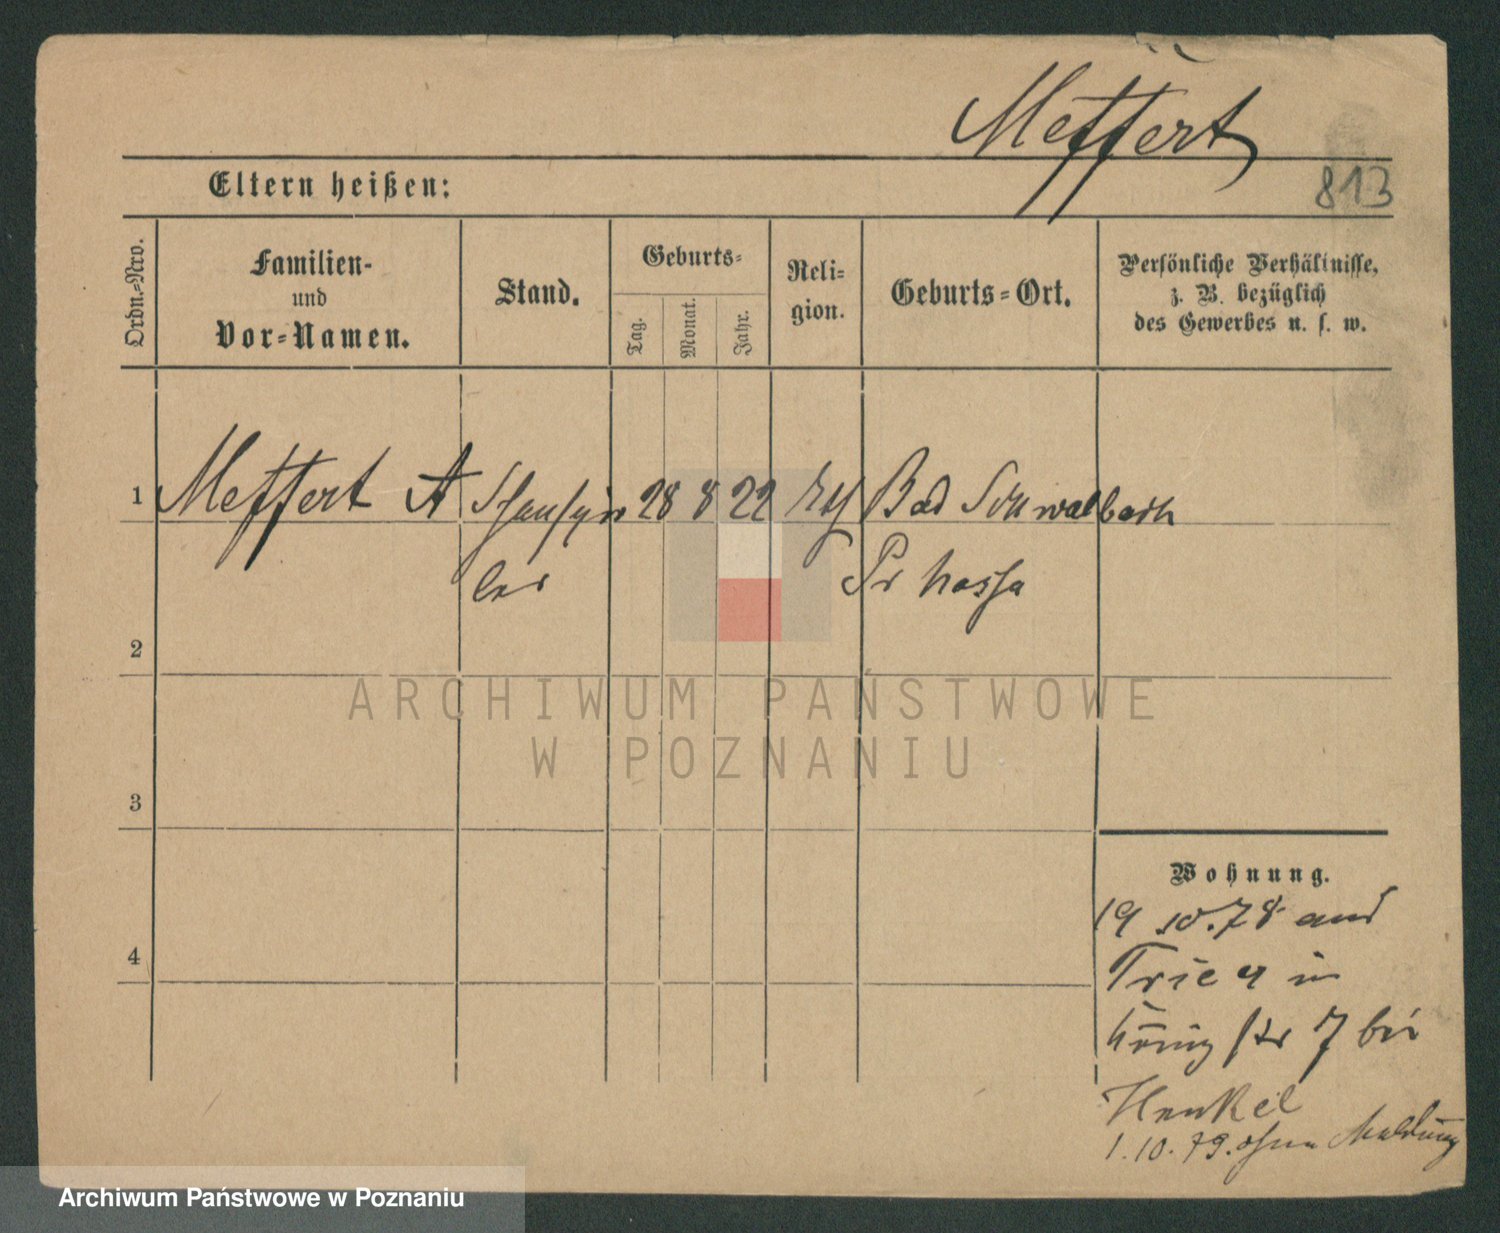 Meffert
813
Eltern heißen:
Ordn.-Nro.
Familien-
und
Vor-Namen.
Stand.
Geburts-
Tag.
Monat.
Jahr.
Reli-
gion.
Geburts-Ort.
Persönliche Verhältnisse,
z. B. bezüglich
des Gewerbes u. s. w.
1 Meffert A Schauspie 28 8 22 Bad Schwalbach
ler Pr
2
3
4
ARCHIWUM PAŃSTWOWE
W POZNANIU
Wohnung.
19 10.78 aus
Trier in
König str 7 bei
Henkel
1.10.79. ohne Meldung
Archiwum Państwowe w Poznaniu